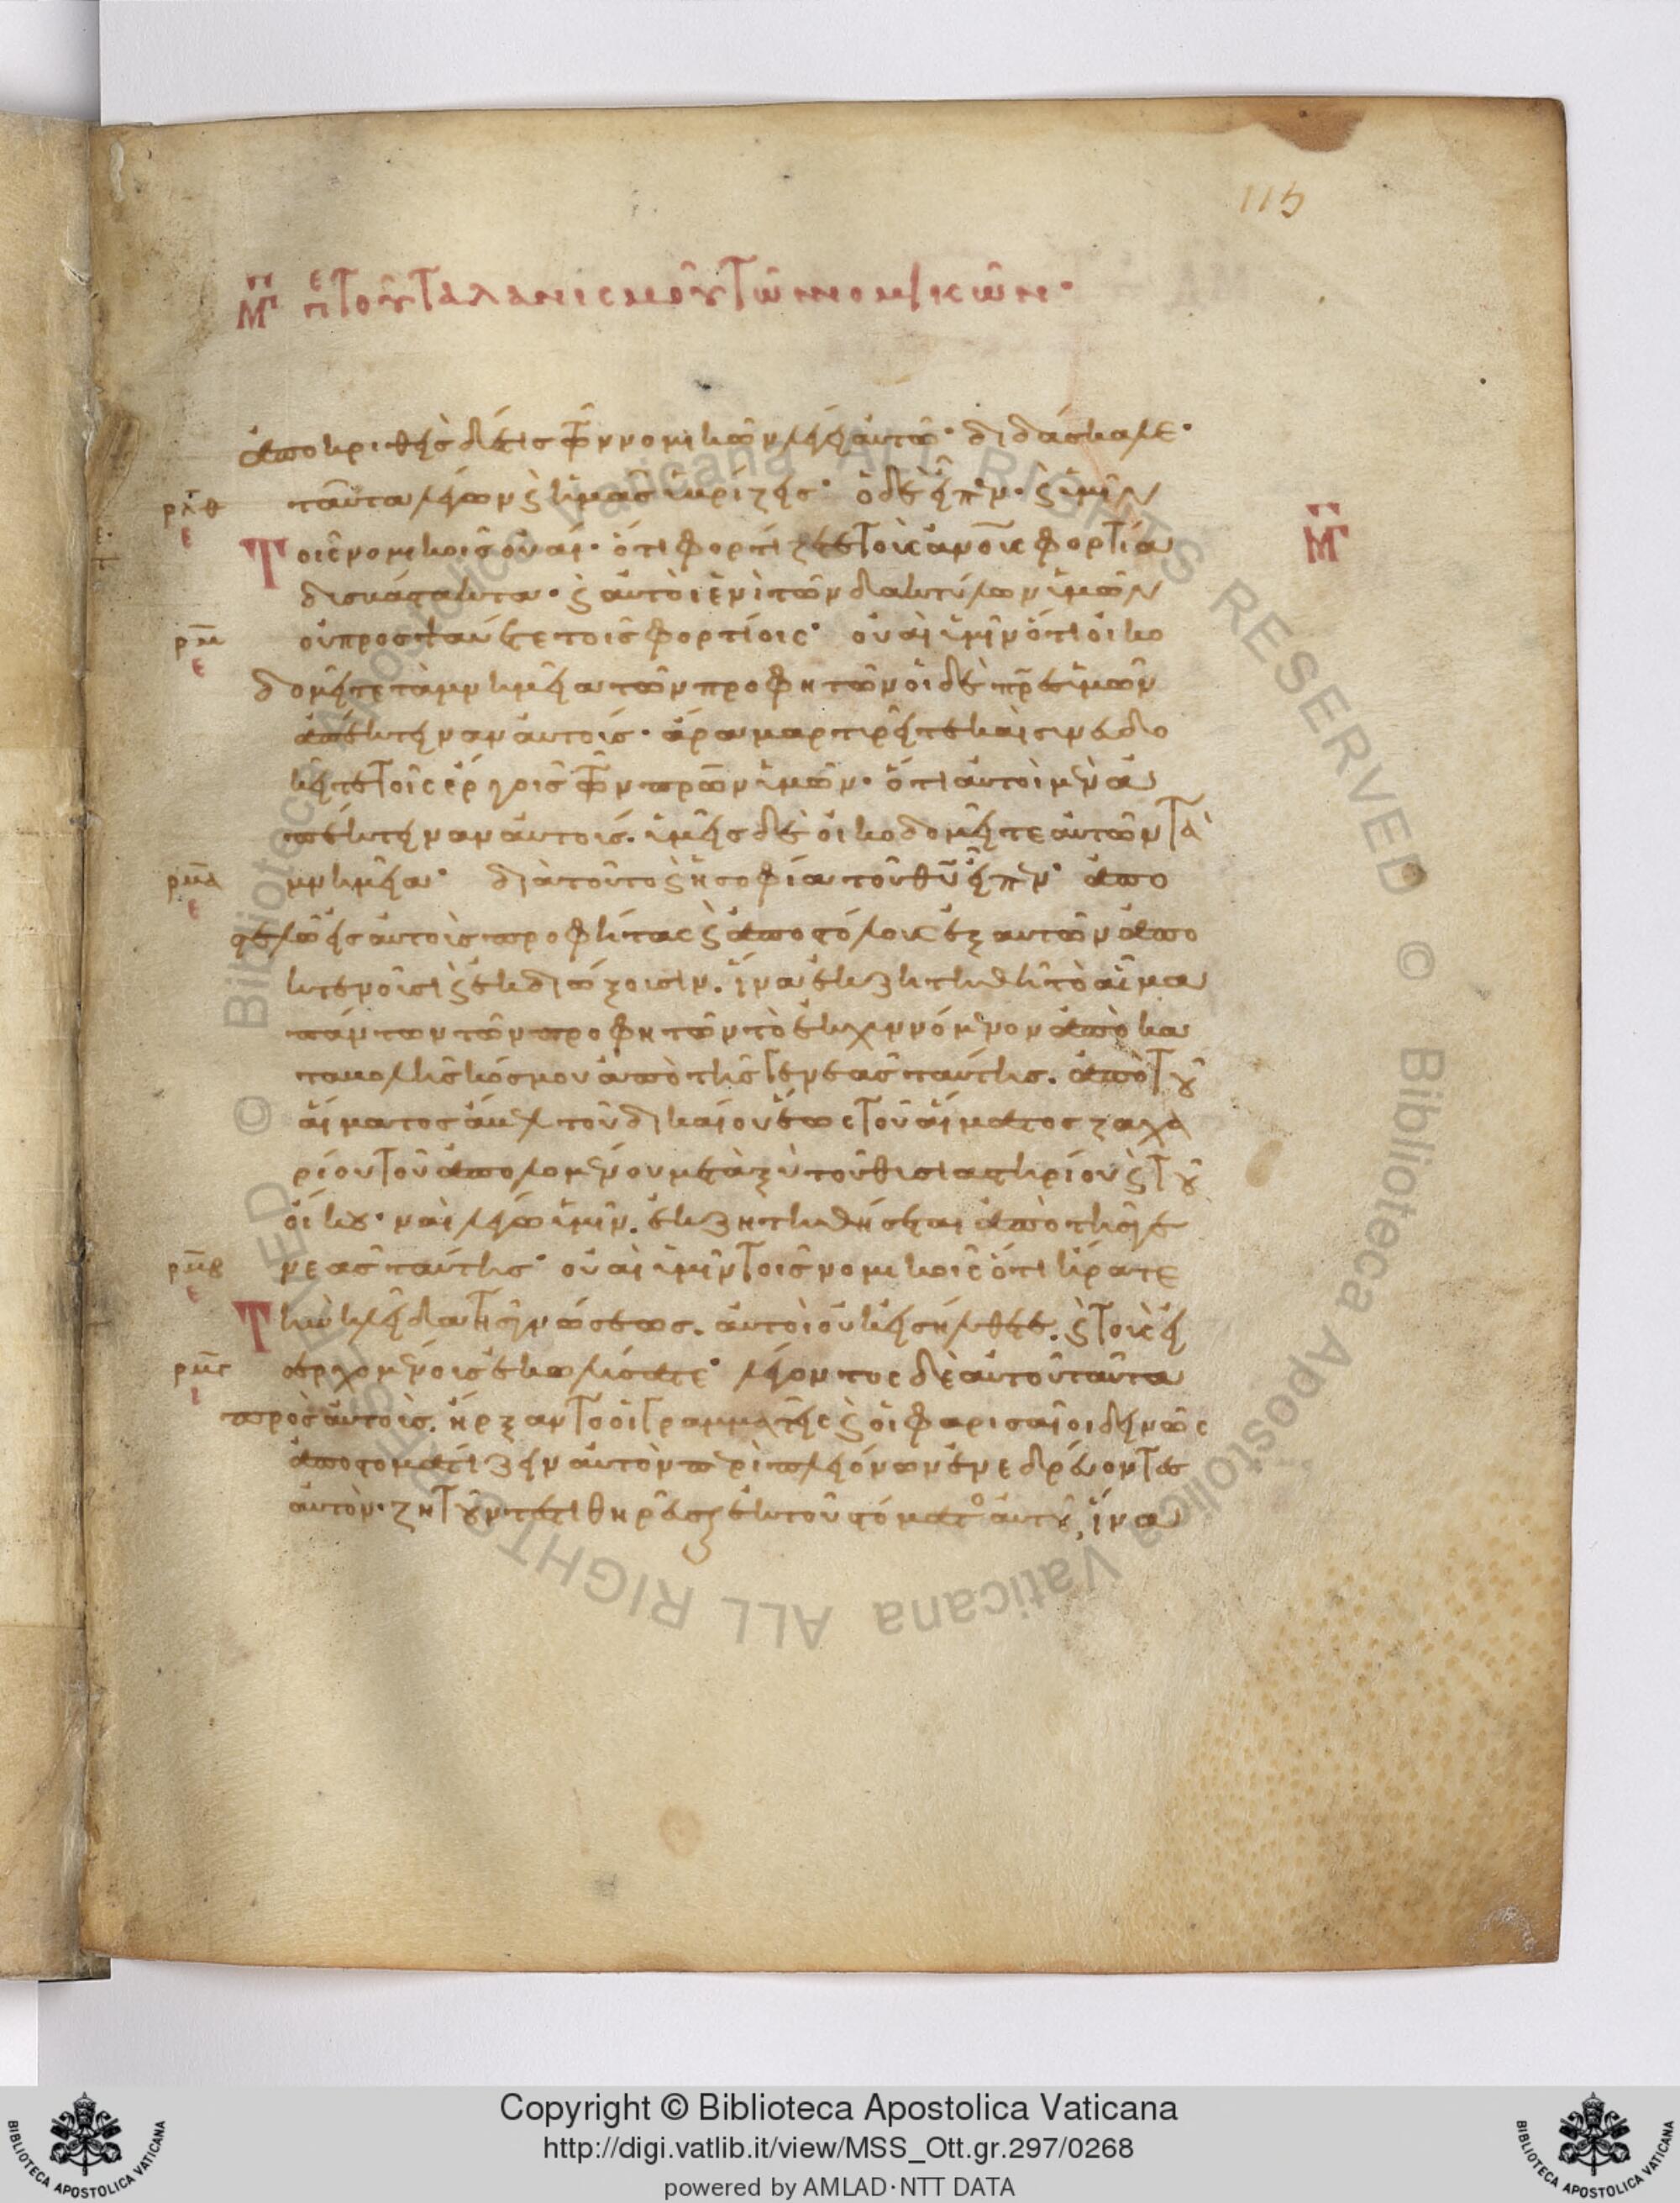 115
μγ πε τοῦ ταλανισμοῦ τῶν νομικῶν·
ἀποκριθεὶς δέ τις τῶν νομικῶν λέγει αὐτῶ· διδάσκαλε·
ρλθ ταῦτα λέγων ϗ ἡμᾶς ὑβρίζεις· ὁ δὲ εἶπεν· ϗ ὑμῖν
ε τοῖς νομικοῖς οὐαί· ὅτι φορτίζετε τοὺς ἀνους φορτία μγ
δυσβάστακτα· ϗ αὐτοὶ ἑνὶ τῶν δακτύλων ὑμῶν
ρμ οὐ προσψαύετε τοῖς φορτίοις· οὐαὶ ὑμῖν ὅτι οἰκο
ε δομεῖτε τὰ μνημεῖα τῶν προφητῶν οἱ δὲ πρες ὑμῶν
ἀπέκτειναν αὐτούς· ἄρα μαρτυρεῖτε καὶ συνευδο
κεῖτε τοῖς ἔργοις τῶν πρων ὑμῶν· ὅτι αὐτοὶ μὲν ἀ
πέκτειναν αὐτούς. ὑμεῖς δὲ οἰκοδομεῖτε αὐτῶν τὰ
ρμα μνημεῖα· διὰ τοῦτο ϗ ἡ σοφία τοῦ θυ εἶπεν· ἀπο
ε στελῶ εἰς αὐτοὺς προφήτας ϗ ἀποστόλους ϗ ἐξ αὐτῶν ἀπο
κτενοῦσι ϗ ἐκδιώξουσιν. ἵνα ἐκζητηθῆ τὸ αἷμα
πάντων τῶν προφητῶν τὸ ἐκχυννόμενον ἀπὸ κα
ταβολῆς κόσμου ἀπὸ τῆς γενεᾶς ταύτης. ἀπὸ τοῦ
αἵματος ἄβελ τοῦ δικαίου ἕως τοῦ αἵματος ζαχα
ρίου τοῦ ἀπολομένου μεταξὺ τοῦ θυσιαστηρίου ϗ τοῦ
οἴκου· ναὶ λέγω ὑμῖν. ἐκζητηθήσεται ἀπὸ τῆς γε
ρμβ νεᾶς ταύτης· οὐαὶ ὑμῖν τοῖς νομικοῖς ὅτι ἤρατε
ε τὴν κλεῖδα τῆς γνώσεως. αὐτοὶ οὐκ εἰσήλθετε. ϗ τοὺς εἰ
ρμγ σερχομένους ἐκωλύσατε· λέγοντος δὲ αὐτοῦ ταῦτα
ι πρὸς αὐτούς. ἤρξαντο οἱ γραμματεῖς ϗ οἱ φαρισαῖοι δεινῶς
ἀποστοματίζειν αὐτὸν περὶ πλειόνων ἐνεδρεύοντες
αὐτὸν· ζητοῦντές τι θηρεῦσαι ἐκ τοῦ στόματος αὐτοῦ, ἵνα
Copyright © Biblioteca Apostolica Vaticana
http://digi.vatlib.it/view/MSS_Ott.gr.297/0268
powered by AMLAD·NTT DATA